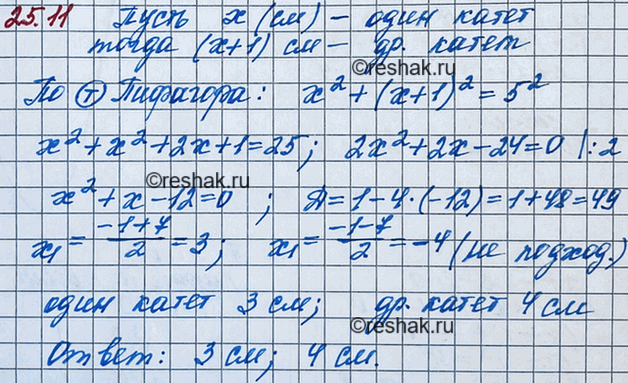 25.11 Пусть x (см) – один катет
тогда (x+1) см – др. катет
©reshak.ru
По Ⓣ Пифагора: x² + (x+1)² = 5²
x² + x² + 2x + 1 = 25; 2x² + 2x – 24 = 0 |:2
©reshak.ru
x² + x – 12 = 0 ; Д = 1 – 4·(–12) = 1 + 48 = 49
x₁ = (–1+7)/2 = 3; x₁ = (–1–7)/2 = –4 (не подход.)
один катет 3 см; др. катет 4 см
©reshak.ru
Ответ: 3 см; 4 см.